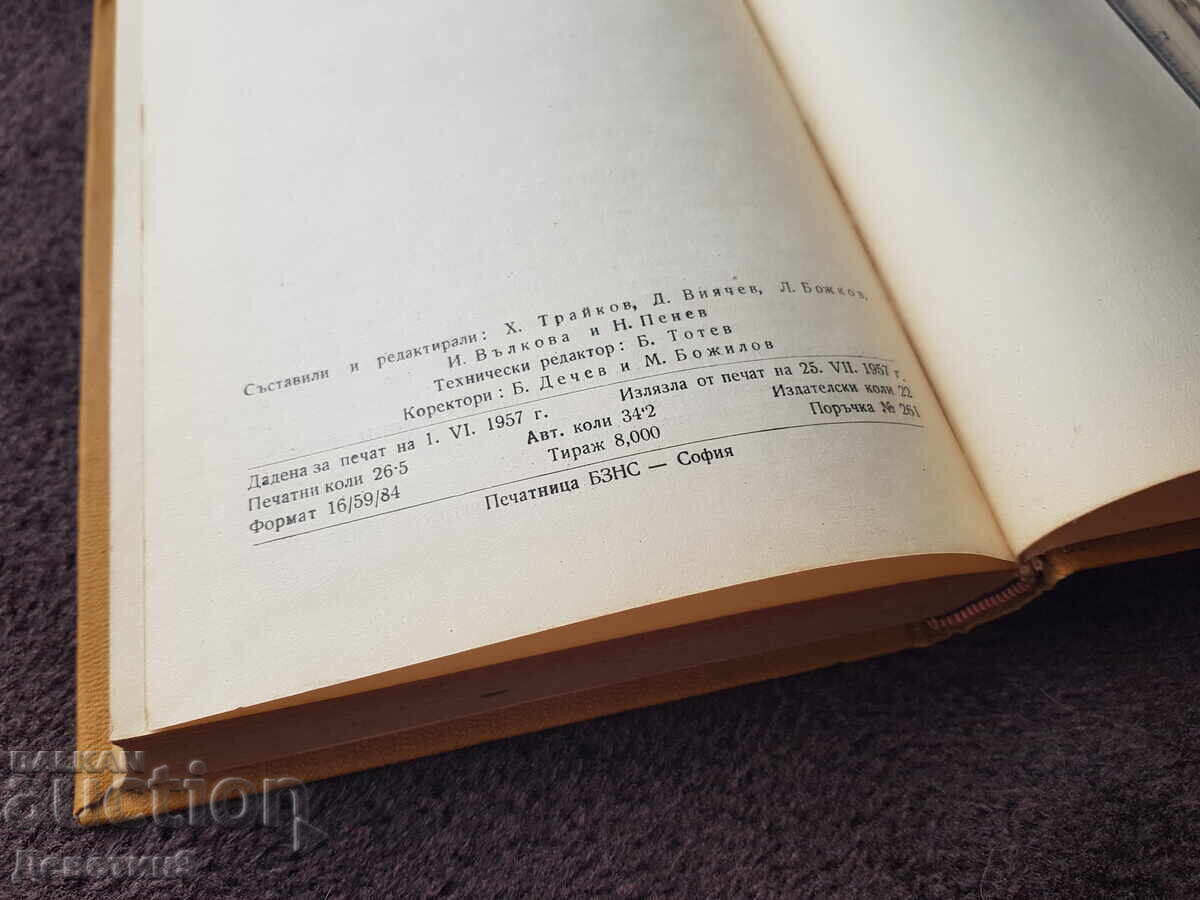 Съставили и редактирали: Х. Трайков, Д. Виячев, Л. Божков,
И. Вълкова и Н. Пенев
Технически редактор: Б. Тотев
Коректори: Б. Дечев и М. Божилов
Дадена за печат на 1. VI. 1957 г. Излязла от печат на 25. VII. 1957 г.
Печатни коли 26·5 Авт. коли 34·2 Издателски коли 22
Формат 16/59/84 Тираж 8,000 Поръчка № 261
Печатница БЗНС — София
BALKAN
auction